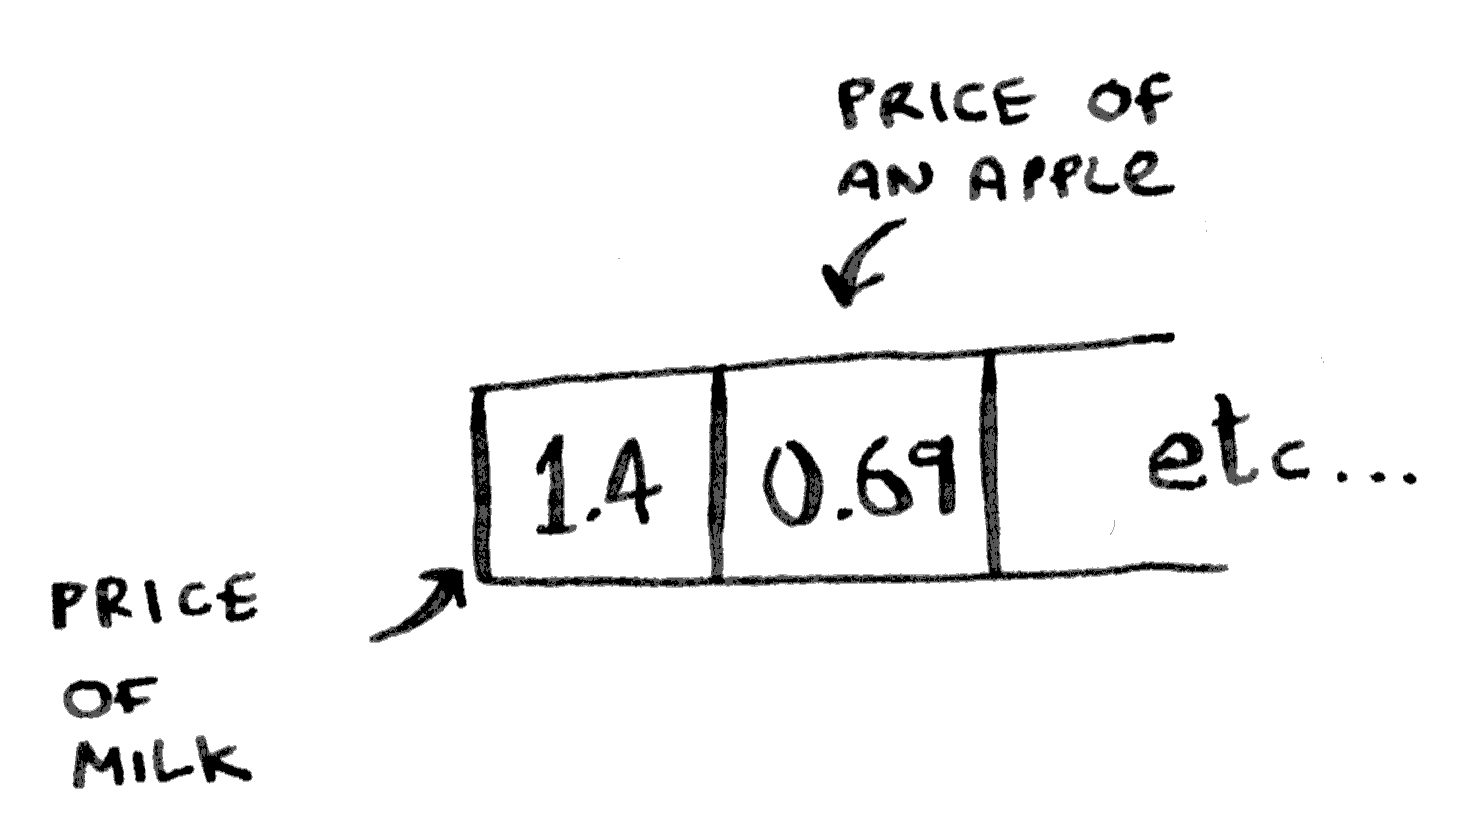 PRICE OF
AN APPLE
1.4 0.69 etc...
PRICE
OF
MILK